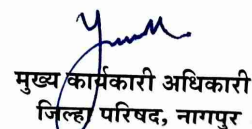 मुख्य कार्यकारी अधिकारी
जिल्हा परिषद, नागपुर